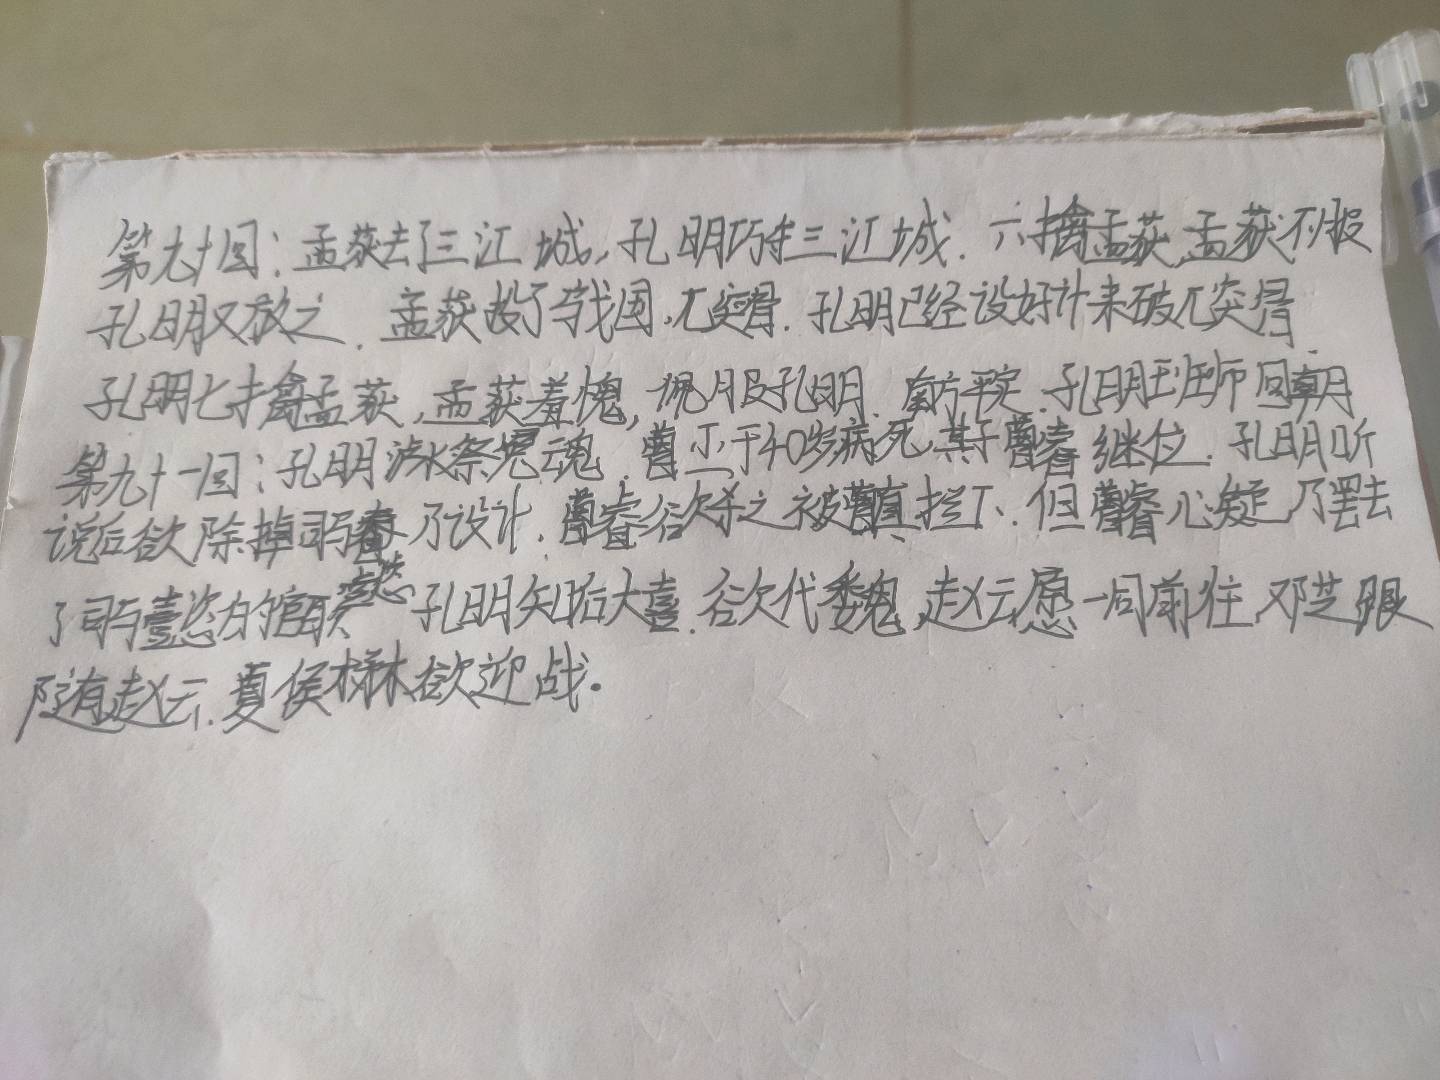 第九十回：孟获去了三江城，孔明巧夺三江城．六擒孟获，孟获不服
孔明又放之．孟获投了乌戈国，兀突骨．孔明已经设好计来破兀突骨
孔明七擒孟获，孟获羞愧，佩服孔明．南方平定．孔明班师回朝．
第九十一回：孔明泸水祭冤魂．曹丕于40岁病死，其子曹睿继位．孔明听
说后欲除掉司马懿乃设计．曹睿欲杀之被曹真拦下．但曹睿心疑乃罢去
了司马懿的官职 孔明知后大喜．欲伐魏，赵云愿一同前往，邓芝跟
随有赵云．夏侯楙欲迎战．